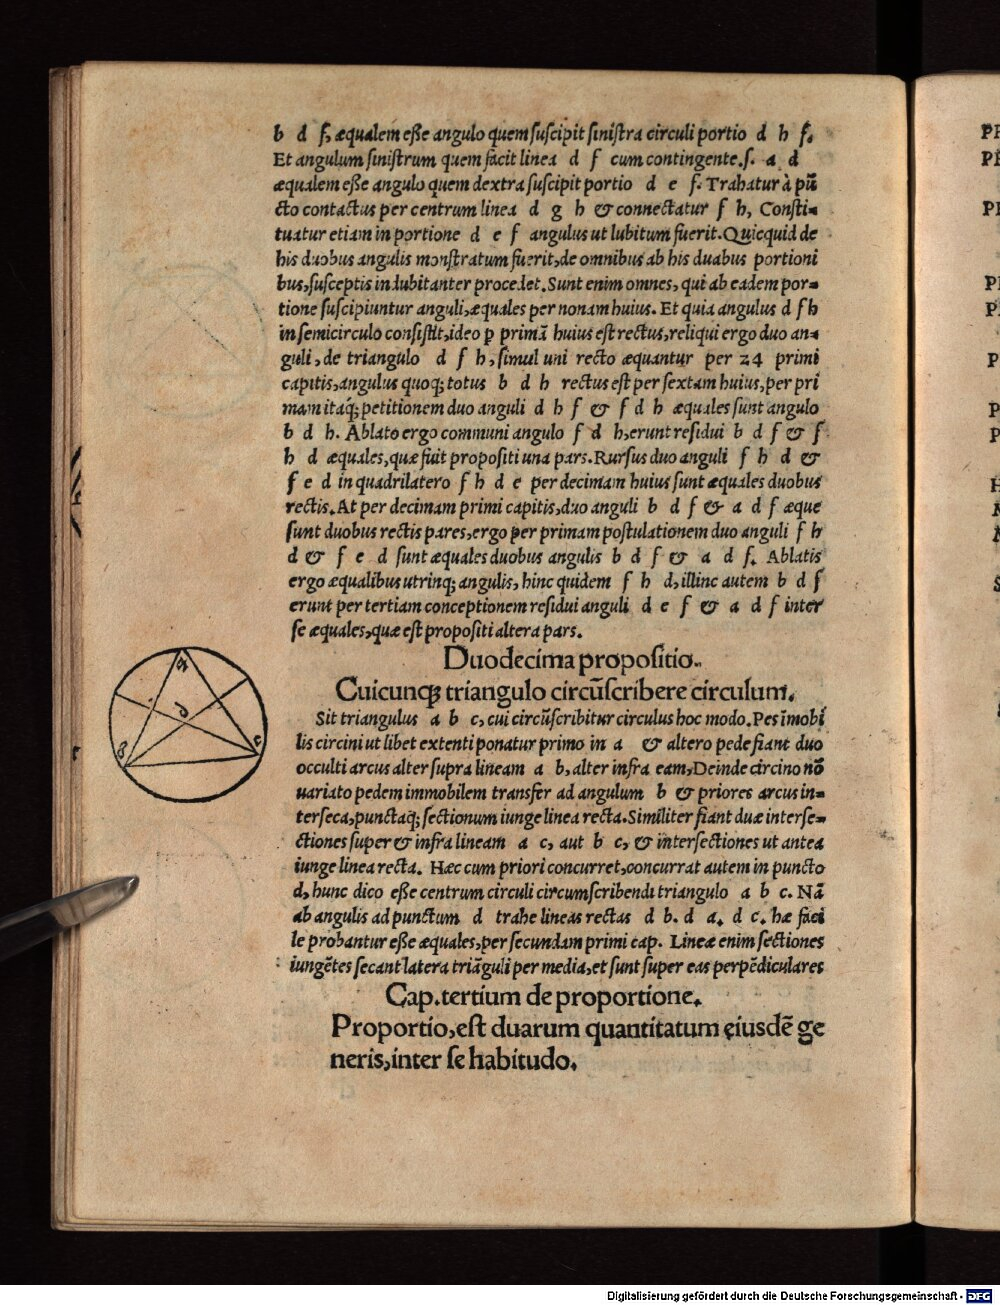 b d f, æqualem eſſe angulo quem ſuſcipit ſiniſtra circuli portio d h f.
Et angulum ſiniſtrum quem facit linea d f cum contingente.ſ. a d
æqualem eſſe angulo quem dextra ſuſcipit portio d e f. Trahatur à pũ
cto contactus per centrum linea d g h & connectatur f h, Conſti-
tuatur etiam in portione d e f angulus ut lubitum fuerit. Quicquid de
his duobus angulis monſtratum fuerit, de omnibus ab his duabus portioni
bus, ſuſceptis indubitanter procedet. Sunt enim omnes, qui ab eadem por-
tione ſuſcipiuntur anguli, æquales per nonam huius. Et quia angulus d f h
in ſemicirculo conſiſtit, ideo ꝑ primã huius eſt rectus, reliqui ergo duo an-
guli, de triangulo d f h, ſimul uni recto æquantur per 24 primi
capitis, angulus quoqꝫ totus b d h rectus eſt per ſextam huius, per pri
mam itaqꝫ petitionem duo anguli d h f & f d h æquales ſunt angulo
b d h. Ablato ergo communi angulo f d h, erunt reſidui b d f & f
h d æquales, quæ fuit propoſiti una pars. Rurſus duo anguli f h d &
f e d in quadrilatero f h d e per decimam huius ſunt æquales duobus
rectis. At per decimam primi capitis, duo anguli b d f & a d f æque
ſunt duobus rectis pares, ergo per primam poſtulationem duo anguli f h
d & f e d ſunt æquales duobus angulis b d f & a d f. Ablatis
ergo æqualibus utrinqꝫ angulis, hinc quidem f h d, illinc autem b d f
erunt per tertiam conceptionem reſidui anguli d e f & a d f inter
ſe æquales, quæ eſt propoſiti altera pars.
Duodecima propoſitio.
Cuicunqꝫ triangulo circũſcribere circulum.
Sit triangulus a b c, cui circũſcribitur circulus hoc modo. Pes ĩmobi
lis circini ut libet extenti ponatur primo in a & altero pede fiant duo
occulti arcus alter ſupra lineam a b, alter infra eam, Deinde circino nõ
uariato pedem immobilem transfer ad angulum b & priores arcus in-
terſeca, punctaqꝫ ſectionum iunge linea recta. Similiter fiant duæ interſe-
ctiones ſuper & infra lineam a c, aut b c, & interſectiones ut antea
iunge linea recta. Hæc cum priori concurret, concurrat autem in puncto
d, hunc dico eſſe centrum circuli circumſcribendi triangulo a b c. Nã
ab angulis ad punctum d trahe lineas rectas d b. d a. d c. hæ faci
le probantur eſſe æquales, per ſecundam primi cap. Lineæ enim ſectiones
iungẽtes ſecant latera triãguli per media, et ſunt ſuper eas perpẽdiculares
Cap. tertium de proportione.
Proportio, eſt duarum quantitatum eiusdẽ ge
neris, inter ſe habitudo.
a
d
b
c
Digitalisierung gefördert durch die Deutsche Forschungsgemeinschaft - DFG